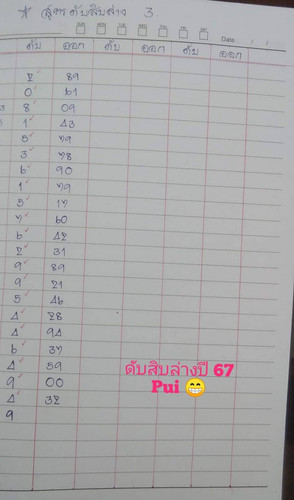 * สูตรดับสิบล่าง 3.
SUN MON TUE WED THU FRI SAT
Date / /
ดับ ออก ดับ ออก ดับ ออก
2 89
0 61
8 09
1 43
5 79
3 78
6 90
1 79
5 17
7 60
6 42
2 31
9 89
9 21
5 46
4 28
4 94
6 37
4 59
9 00
4 32
9
ดับสิบล่างปี 67
Pui 😁